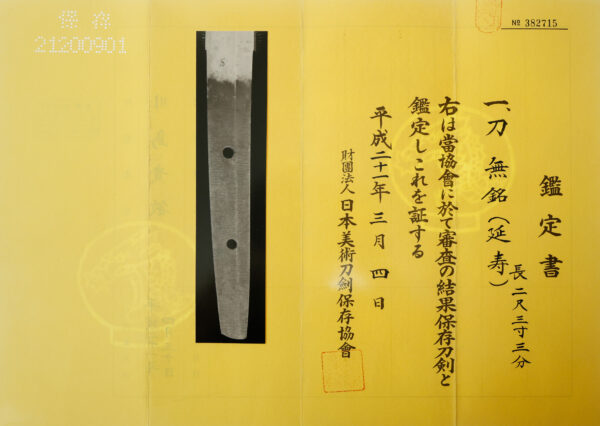 鑑定書
一、刀 無銘(延寿)
長二尺三寸三分
右は當協會に於て審査の結果保存刀剣と
鑑定しこれを証する
平成二十一年三月四日
財團法人日本美術刀劍保存協會
№ 382715
保存
21200901